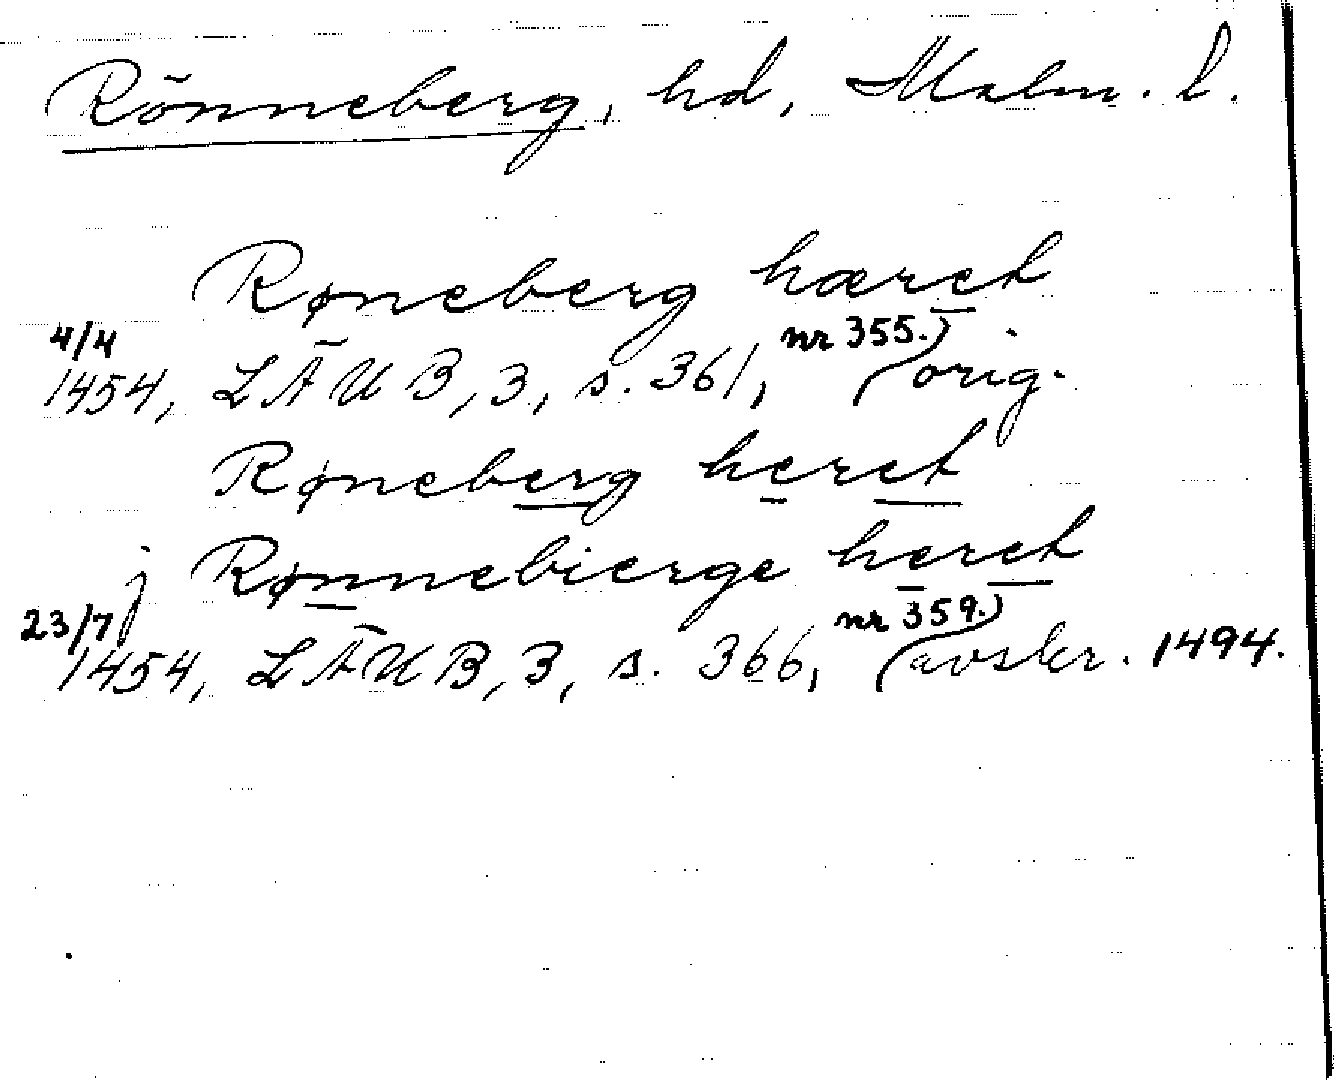 Rönneberg, hd, Malm. l.
Røneberg hæret
4/4 nr 355.)
1454, LÄUB, 3, s. 361, orig.
Røneberg heret
j Rønnebierge heret
23/7 nr 359.)
1454, LÄUB, 3, s. 366, avskr. 1494.